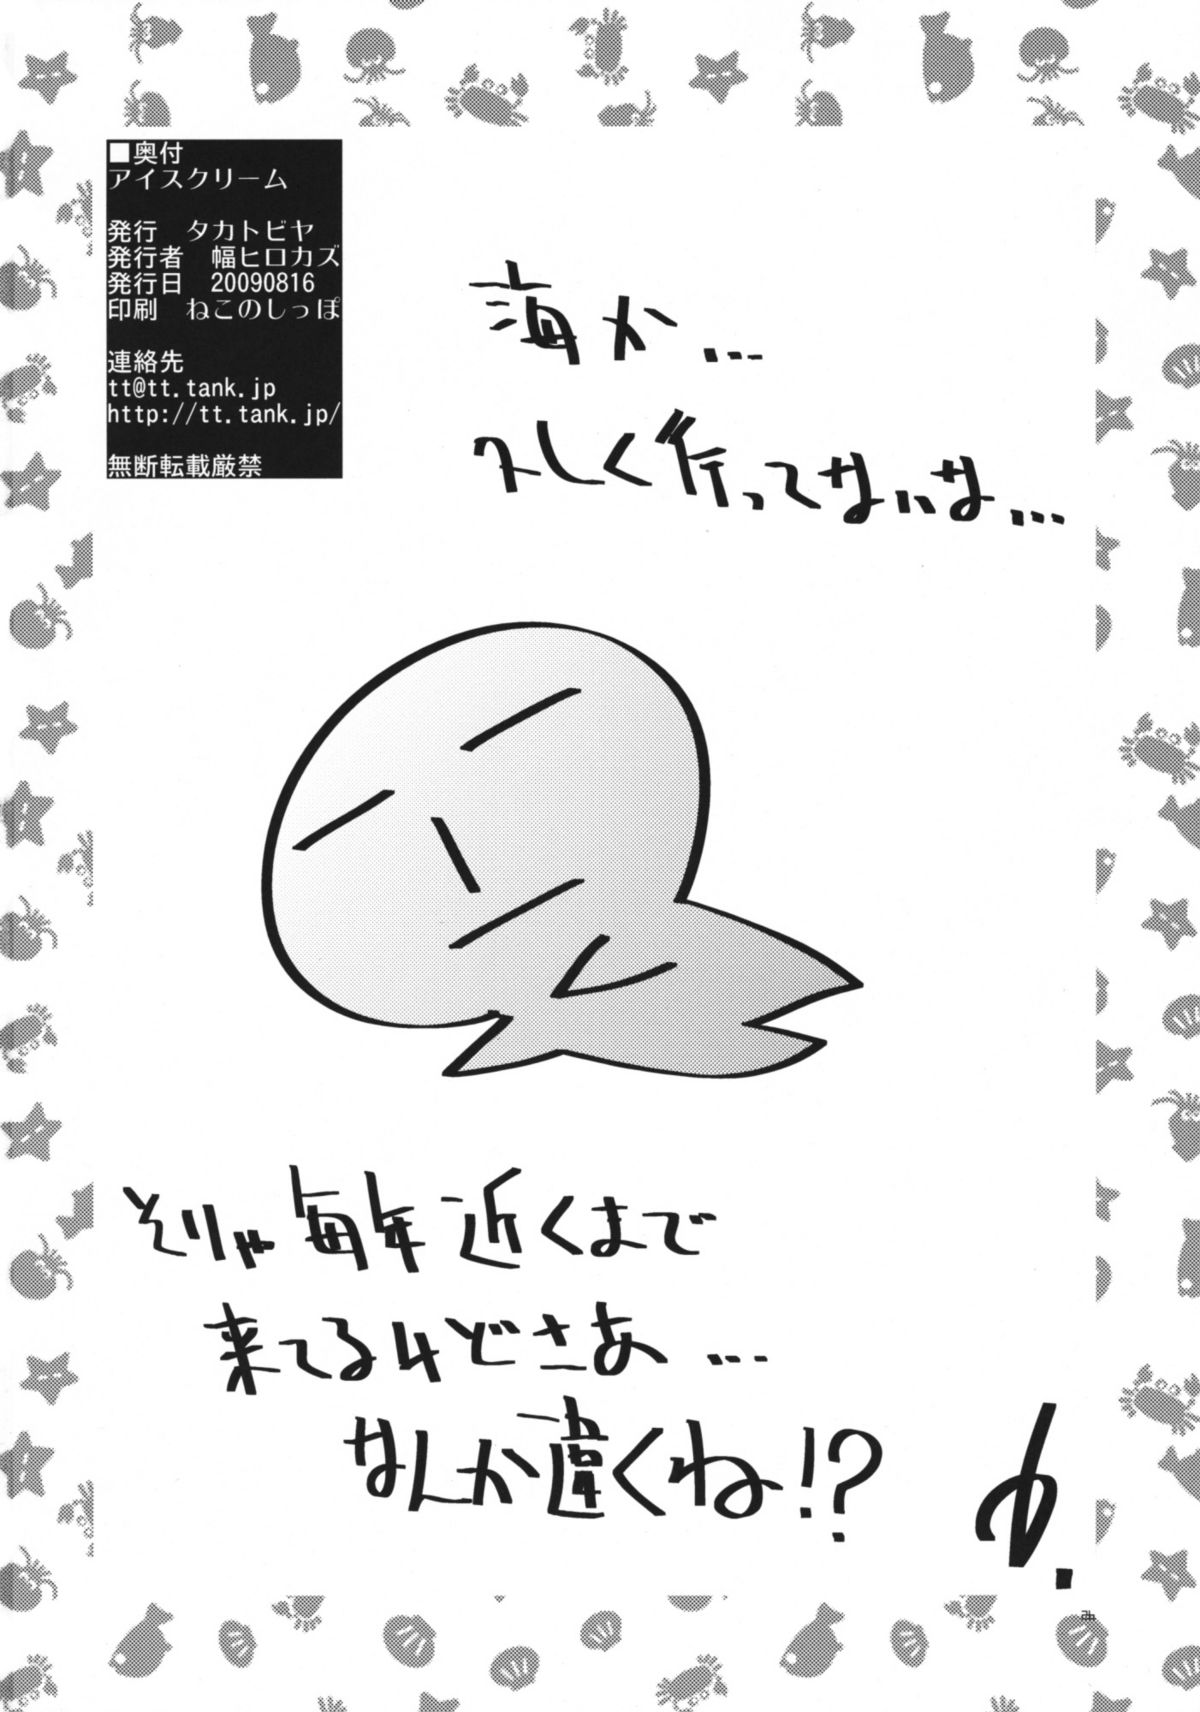 ■奥付
アイスクリーム
発行　タカトビヤ
発行者　幅ヒロカズ
発行日　20090816
印刷　ねこのしっぽ
連絡先
tt@tt.tank.jp
http://tt.tank.jp/
無断転載厳禁
海か…
久しく行ってないな…
そりゃ毎年近くまで
来てるけどさあ…
なんか違くね!?